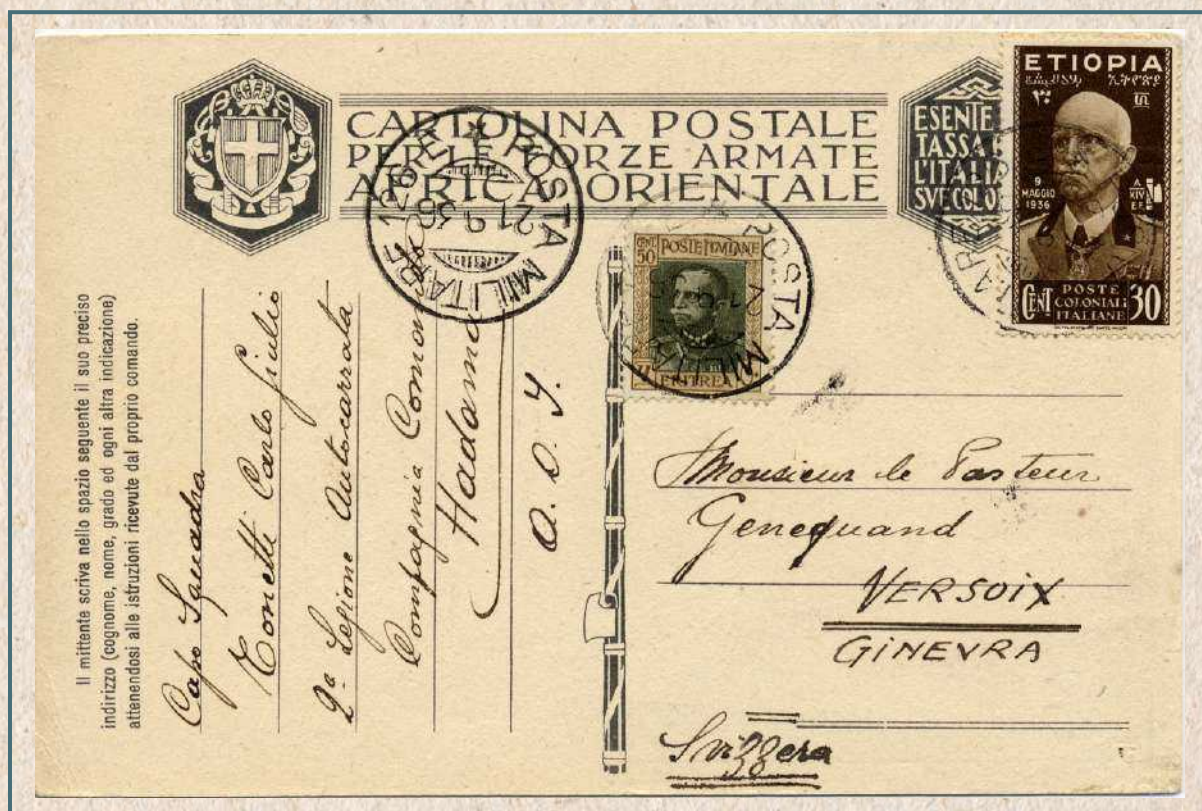 CARTOLINA POSTALE
PER LE FORZE ARMATE
AFRICA ORIENTALE
ESENTE
TASSA
L'ITALI
SVE COLO
ETIOPIA
9
MAGGIO
1936
A
XIV
E.F.
CENT 30
POSTE
COLONIALI
ITALIANE
POSTA MILITARE 130 E
21.9.36
CENT. 50
POSTE ITALIANE
ERITREA
POSTA MILITARE
Il mittente scriva nello spazio seguente il suo preciso
indirizzo (cognome, nome, grado ed ogni altra indicazione)
attenendosi alle istruzioni ricevute dal proprio comando.
Capo Squadra
Carlo Giulio
2ª Legione Autocarrata
Compagnia
Hadama
A. O. I.
Monsieur le Pasteur
Genequand
VERSOIX
GINEVRA
Svizzera